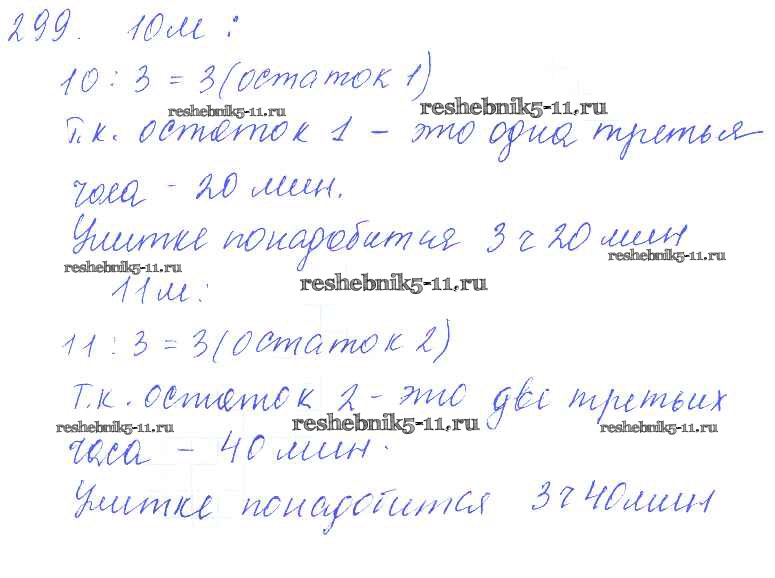 299. 10м:
10 : 3 = 3 (остаток 1)
reshebnik5-11.ru reshebnik5-11.ru
Т.к. остаток 1 - это одна третья
часа - 20 мин.
Улитке понадобится 3 ч 20 мин
reshebnik5-11.ru reshebnik5-11.ru
11м: reshebnik5-11.ru
11 : 3 = 3 (остаток 2)
Т.к. остаток 2 - это две третьих
reshebnik5-11.ru reshebnik5-11.ru reshebnik5-11.ru
часа - 40 мин.
Улитке понадобится 3 ч 40 мин